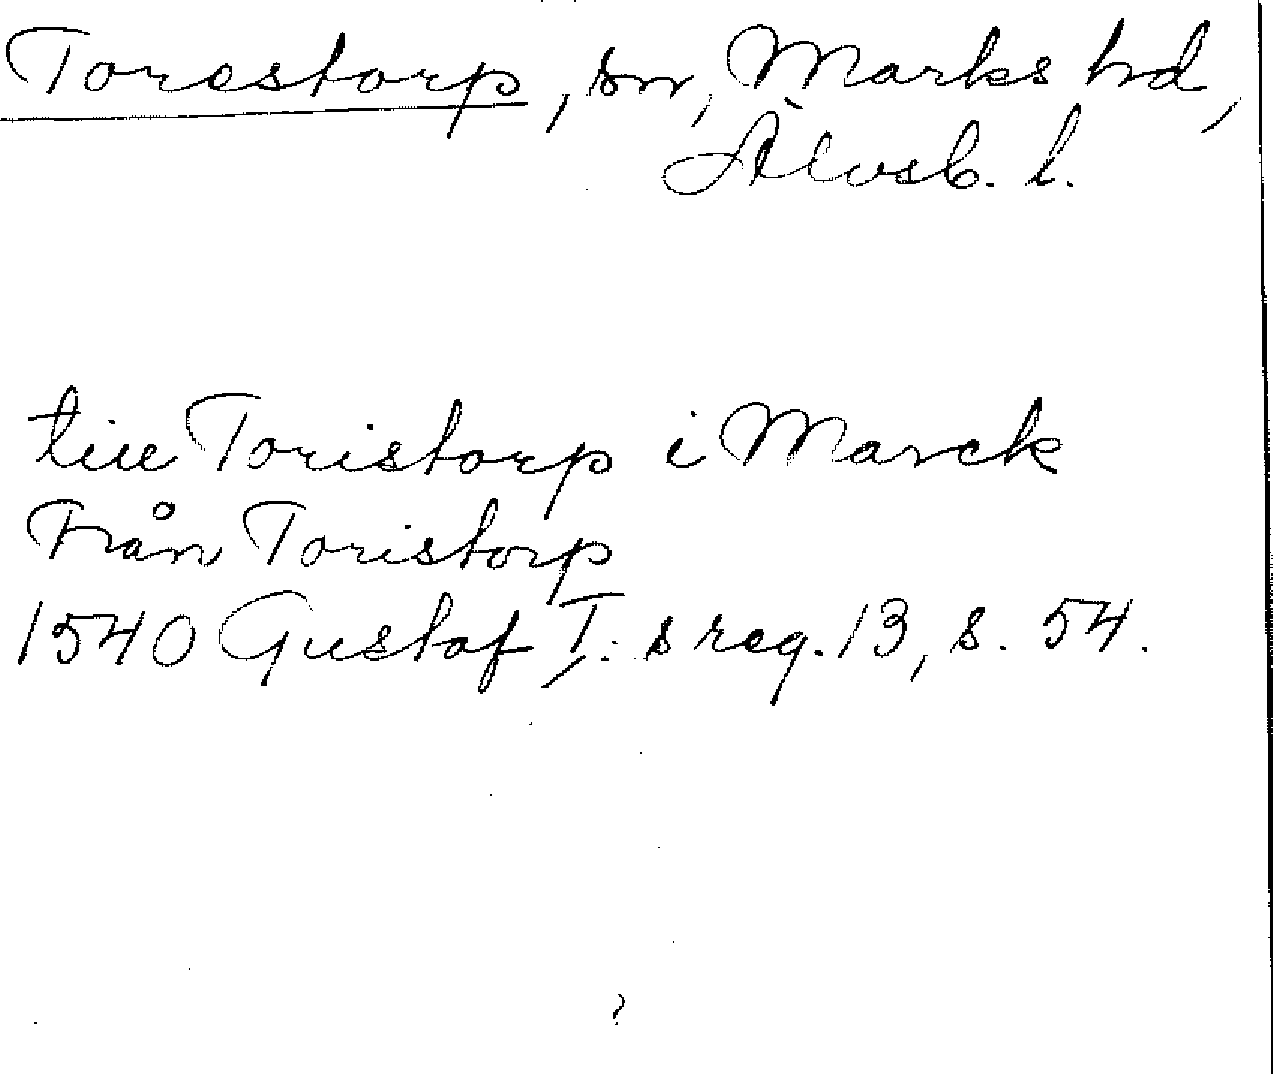 Torestorp, sn, Marks hd,
Älvsb. l.
till Toristorp i Marck
Från Toristorp
1540 Gustaf I: s reg. 13, s. 54.